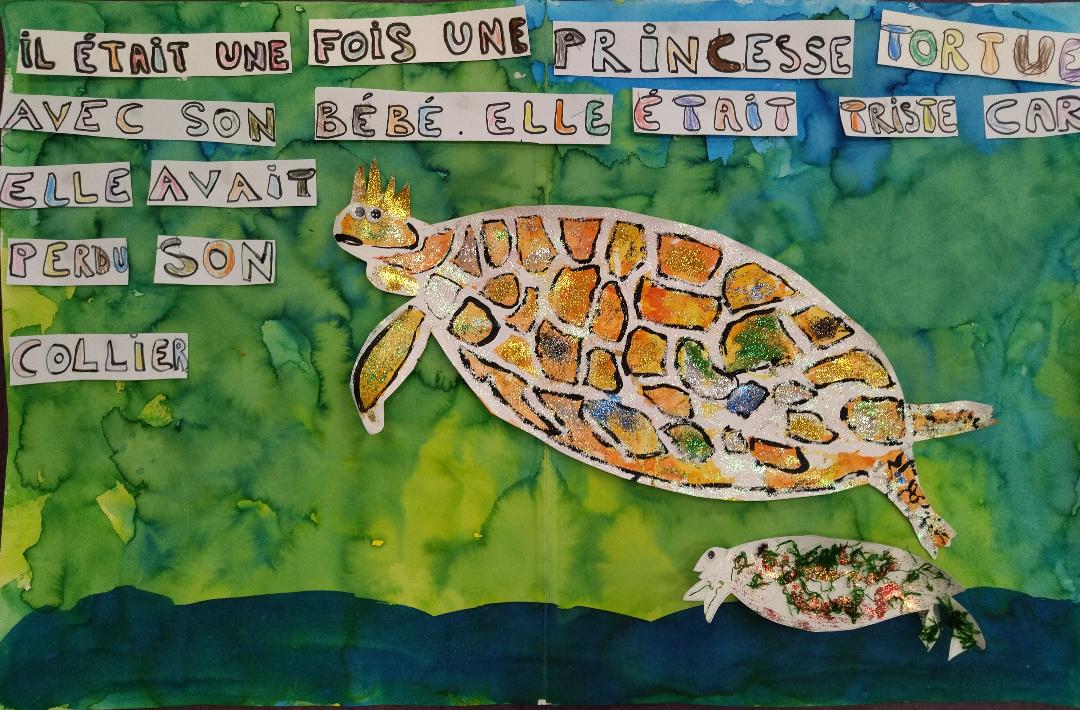 IL ÉTAIT UNE FOIS UNE PRINCESSE TORTUE
AVEC SON BÉBÉ. ELLE ÉTAIT TRISTE CAR
ELLE AVAIT
PERDU SON
COLLIER